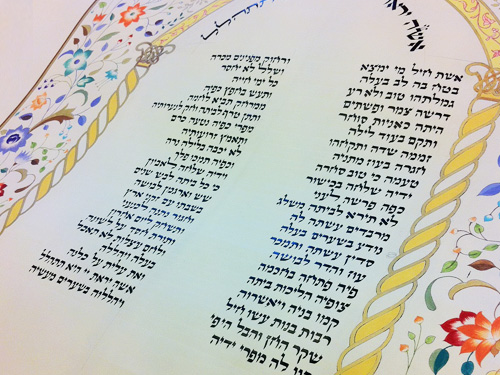 אשה ירא
תתהלל
אשת חיל מי ימצא
בטח בה לב בעלה
גמלתהו טוב ולא רע
דרשה צמר ופשתים
היתה כאניות סוחר
ותקם בעוד לילה
זממה שדה ותקחהו
חגרה בעוז מתניה
טעמה כי טוב סחרה
ידיה שלחה בכישור
כפה פרשה לעני
לא תירא לביתה משלג
מרבדים עשתה לה
נודע בשערים בעלה
סדין עשתה ותמכר
עוז והדר לבושה
פיה פתחה בחכמה
צופיה הליכות ביתה
קמו בניה ויאשרוה
רבות בנות עשו חיל
שקר החן והבל היפי
תנו לה מפרי ידיה
ורחוק מפנינים מכרה
ושלל לא יחסר
כל ימי חייה
ותעש בחפץ כפיה
ממרחק תביא לחמה
ותתן טרף לביתה וחק לנערותיה
מפרי כפיה נטעה כרם
ותאמץ זרועותיה
לא יכבה בלילה נרה
וכפיה תמכו פלך
וידיה שלחה לאביון
כי כל ביתה לבש שנים
שש וארגמן לבושה
בשבתו עם זקני ארץ
וחגור נתנה לכנעני
ותשחק ליום אחרון
ותורת חסד על לשונה
ולחם עצלות לא תאכל
בעלה ויהללה
ואת עלית על כלנה
אשה יראת יי היא תתהלל
ויהללוה בשערים מעשיה